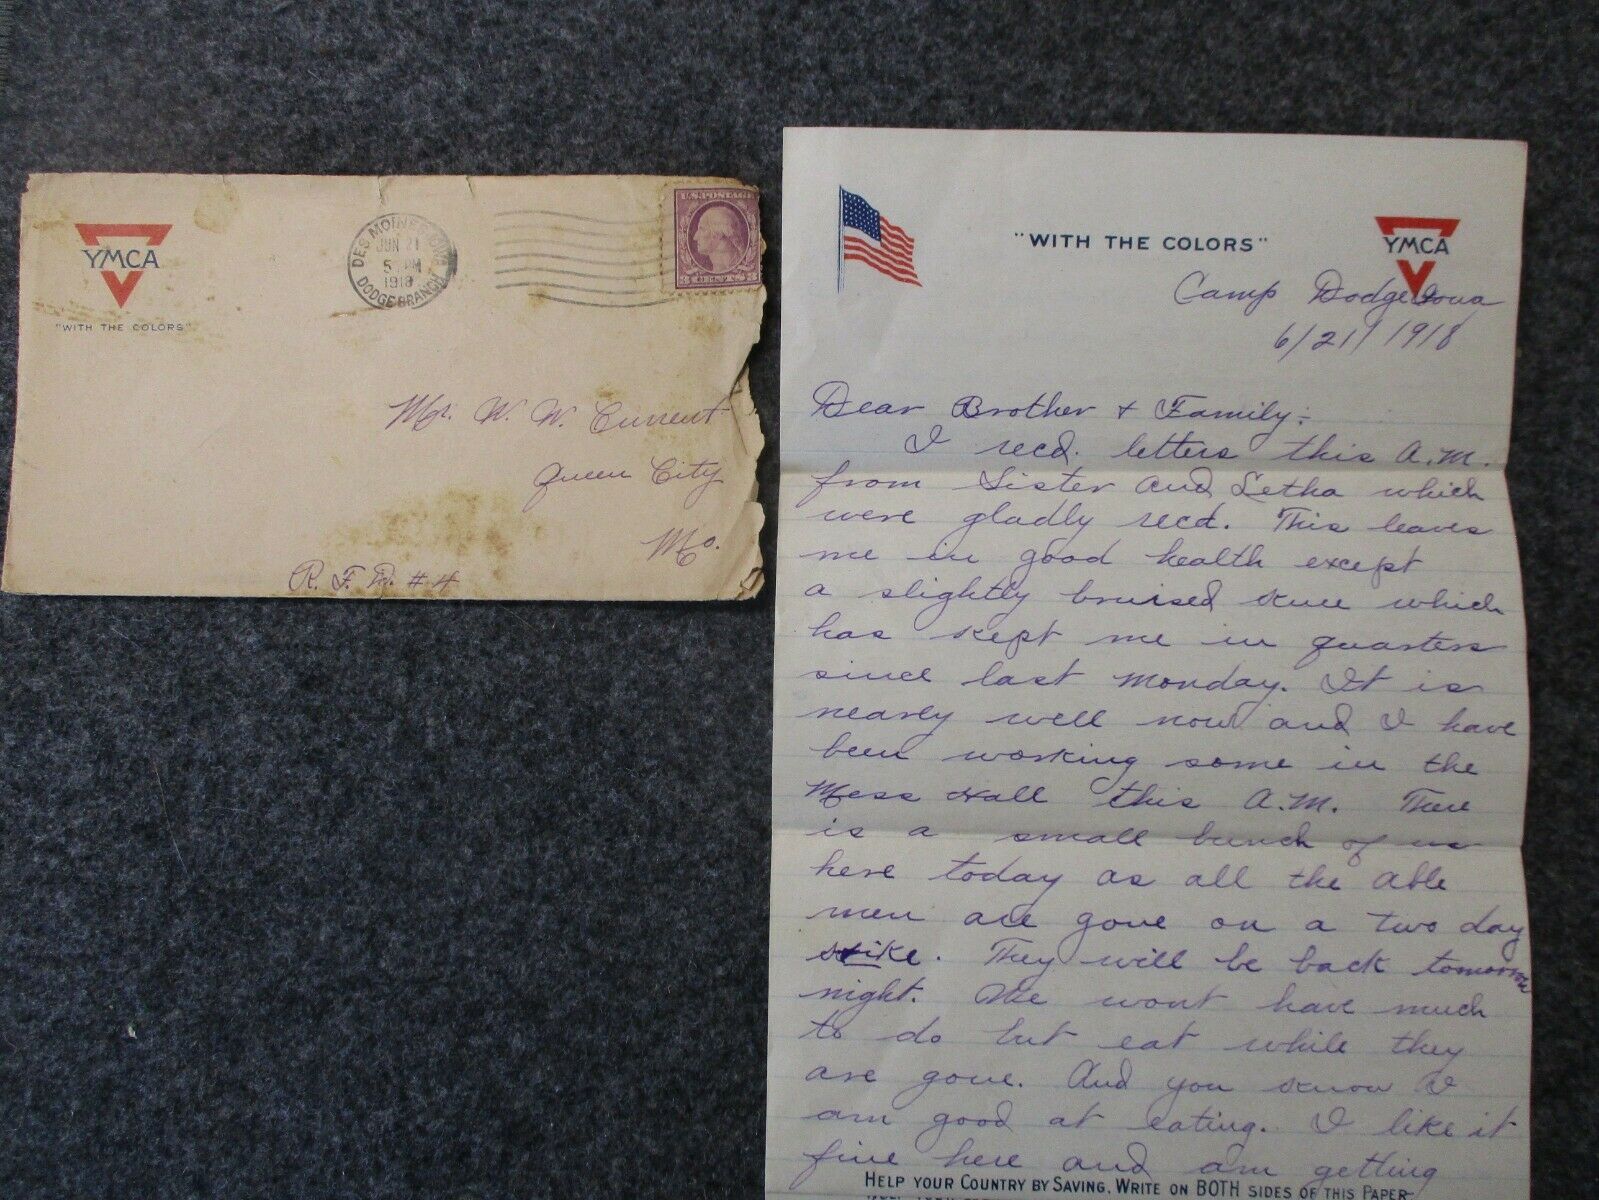 YMCA
"WITH THE COLORS"
DES MOINES, IOWA
JUN 21
5 PM
1918
DODGE BRANCH
U.S. POSTAGE
3 CENTS 3
Mr. W. W. Current
Queen City
Mo.
R. F. D. # 4
"WITH THE COLORS"
YMCA
Camp Dodge Iowa
6/21/1918
Dear Brother & Family:-
I recd. letters this A.M.
from Sister and Letha which
were gladly recd. This leaves
me in good health except
a slightly bruised knee which
has kept me in quarters
since last Monday. It is
nearly well now and I have
been working some in the
Mess Hall this A.M. There
is a small bunch of us
here today as all the able
men are gone on a two day
hike. They will be back tomorrow
night. We wont have much
to do but eat while they
are gone. And you know I
am good at eating. I like it
fine here and am getting
HELP YOUR COUNTRY BY SAVING. WRITE ON BOTH SIDES OF THIS PAPER